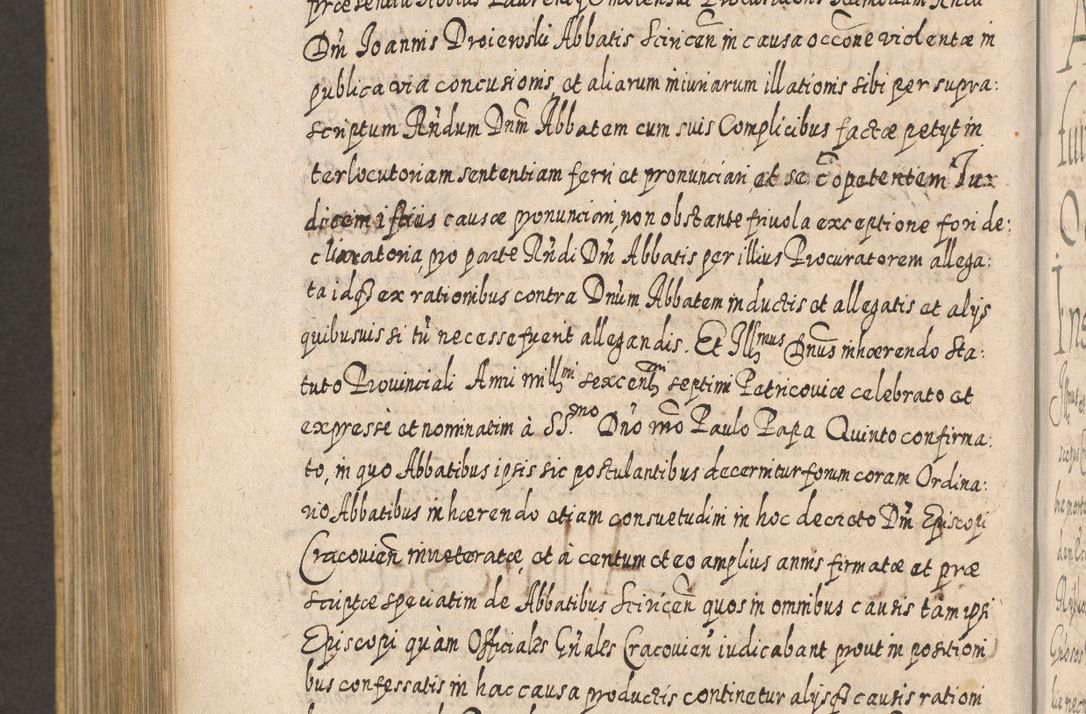 Dm̃ Joannis Droiewski Abbatis Sciricen̄ in causa occõne violentæ in
publica via concusionis, et aliarum iniuriarum illationis sibi per supra:
scriptum Rn̄dum Dnm̃ Abbatem cum suis Complicibus factæ petyt in
terlocutoriam sententiam ferri et pronunciari et se cõpetentem Iu
dicem istius causæ pronunciari, non obstante friuola exceptione fori de:
clinatoria, pro parte Rn̄di Dm̃ Abbatis per illius Procuratorem allega:
ta idq̃ ex rationibus contra Dnũm Abbatem inductis et allegatis et alijs
quibusuis si tũ necesse fuerit allegandis. Et Illmus Dnũs inhærendo Sta:
tuto Prouinciali Anni millmi sexcentmi septimi Petricouiæ celebrato et
expresse et nominatim à SS.mo Dn̄o nr̄o Paulo Papa Quinto confirma:
to, in quo Abbatibus ipsis sic postulantibus decernitur forum coram Ordina:
rio Abbatibus inhærendo etiam consuetudini in hoc decreto Dm̃ Episcopi
Cracouien̄ inueteratæ, et à centum et eo amplius annis firmatæ et præ
scriptæ speciatim de Abbatibus Sciricen̄ quos in omnibus causis tam ipsi
Episcopi quàm Officiales Gn̄ales Cracouien̄ iudicabant prout in position
bus confessatis in hac causa productis continetur alijsq̃ causis rationi